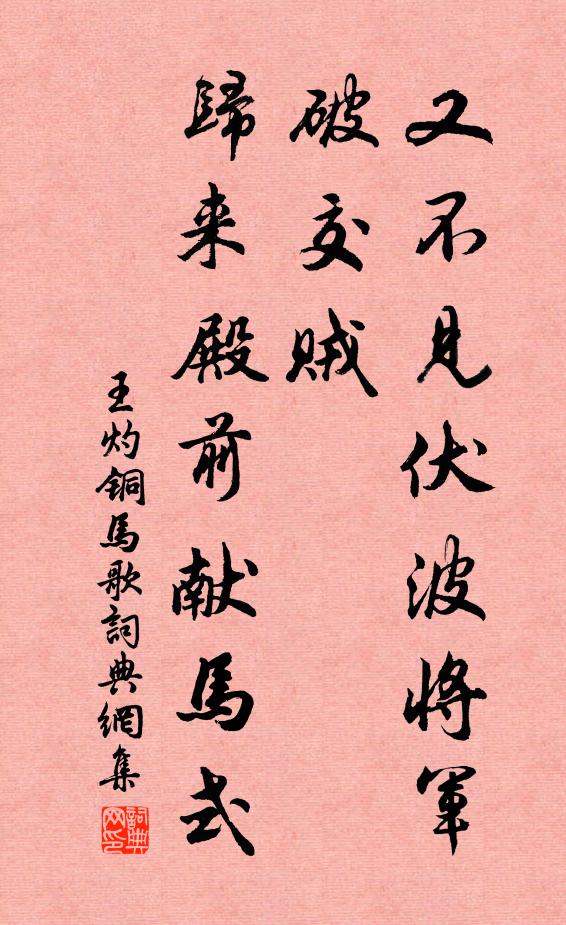 又不見伏波將軍
破交賊
歸来殿前献馬式
王灼銅馬歌詞典網集
詞典
网印